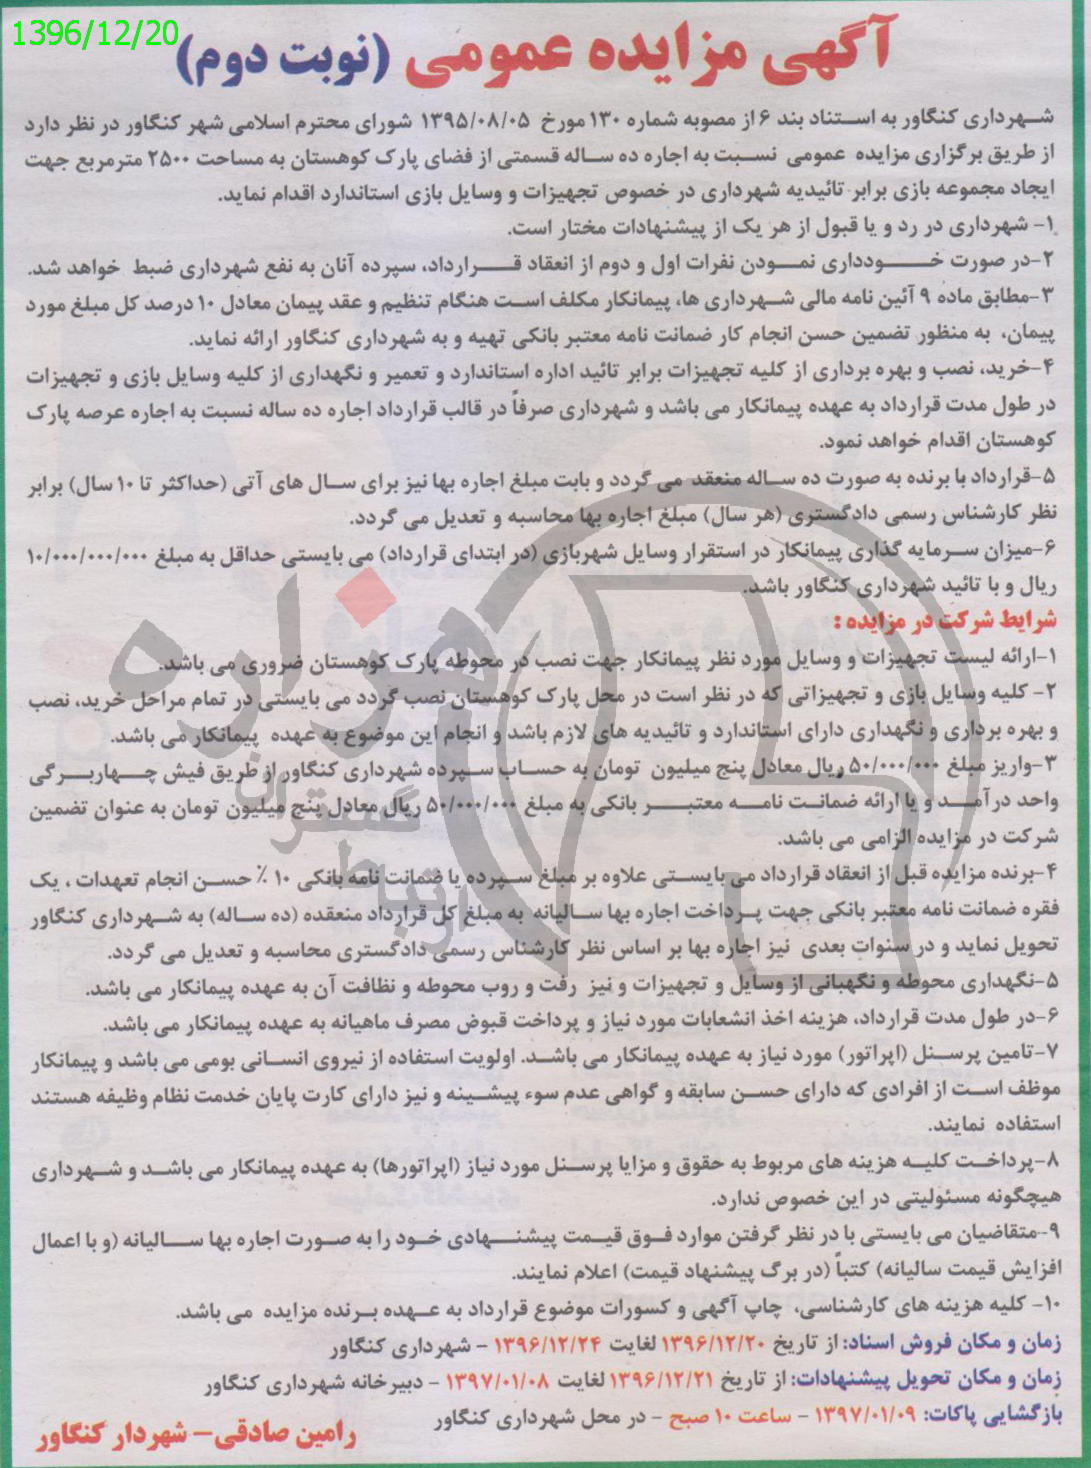 1396/12/20
آگهی مزایده عمومی (نوبت دوم)
شهرداری کنگاور به استناد بند ۶ از مصوبه شماره ۱۳۰ مورخ ۱۳۹۵/۰۸/۰۵ شورای محترم اسلامی شهر کنگاور در نظر دارد
از طریق برگزاری مزایده عمومی نسبت به اجاره ده ساله قسمتی از فضای پارک کوهستان به مساحت ۲۵۰۰ مترمربع جهت
ایجاد مجموعه بازی برابر تائیدیه شهرداری در خصوص تجهیزات و وسایل بازی استاندارد اقدام نماید.
۱- شهرداری در رد و یا قبول از هر یک از پیشنهادات مختار است.
۲-در صورت خودداری نمودن نفرات اول و دوم از انعقاد قرارداد، سپرده آنان به نفع شهرداری ضبط خواهد شد.
۳-مطابق ماده ۹ آئین نامه مالی شهرداری ها، پیمانکار مکلف است هنگام تنظیم و عقد پیمان معادل ۱۰ درصد کل مبلغ مورد
پیمان، به منظور تضمین حسن انجام کار ضمانت نامه معتبر بانکی تهیه و به شهرداری کنگاور ارائه نماید.
۴-خرید، نصب و بهره برداری از کلیه تجهیزات برابر تائید اداره استاندارد و تعمیر و نگهداری از کلیه وسایل بازی و تجهیزات
در طول مدت قرارداد به عهده پیمانکار می باشد و شهرداری صرفاً در قالب قرارداد اجاره ده ساله نسبت به اجاره عرصه پارک
کوهستان اقدام خواهد نمود.
۵-قرارداد با برنده به صورت ده ساله منعقد می گردد و بابت مبلغ اجاره بها نیز برای سال های آتی (حداکثر تا ۱۰ سال) برابر
نظر کارشناس رسمی دادگستری (هر سال) مبلغ اجاره بها محاسبه و تعدیل می گردد.
۶-میزان سرمایه گذاری پیمانکار در استقرار وسایل شهربازی (در ابتدای قرارداد) می بایستی حداقل به مبلغ ۱۰/۰۰۰/۰۰۰/۰۰۰
ریال و با تائید شهرداری کنگاور باشد.
شرایط شرکت در مزایده :
۱-ارائه لیست تجهیزات و وسایل مورد نظر پیمانکار جهت نصب در محوطه پارک کوهستان ضروری می باشد.
۲- کلیه وسایل بازی و تجهیزاتی که در نظر است در محل پارک کوهستان نصب گردد می بایستی در تمام مراحل خرید، نصب
و بهره برداری و نگهداری دارای استاندارد و تائیدیه های لازم باشد و انجام این موضوع به عهده پیمانکار می باشد.
۳-واریز مبلغ ۵۰/۰۰۰/۰۰۰ ریال معادل پنج میلیون تومان به حساب سپرده شهرداری کنگاور از طریق فیش چهاربرگی
واحد درآمد و یا ارائه ضمانت نامه معتبر بانکی به مبلغ ۵۰/۰۰۰/۰۰۰ ریال معادل پنج میلیون تومان به عنوان تضمین
شرکت در مزایده الزامی می باشد.
۴-برنده مزایده قبل از انعقاد قرارداد می بایستی علاوه بر مبلغ سپرده یا ضمانت نامه بانکی ۱۰ ٪ حسن انجام تعهدات ، یک
فقره ضمانت نامه معتبر بانکی جهت پرداخت اجاره بها سالیانه به مبلغ کل قرارداد منعقده (ده ساله) به شهرداری کنگاور
تحویل نماید و در سنوات بعدی نیز اجاره بها بر اساس نظر کارشناس رسمی دادگستری محاسبه و تعدیل می گردد.
۵-نگهداری محوطه و نگهبانی از وسایل و تجهیزات و نیز رفت و روب محوطه و نظافت آن به عهده پیمانکار می باشد.
۶-در طول مدت قرارداد، هزینه اخذ انشعابات مورد نیاز و پرداخت قبوض مصرف ماهیانه به عهده پیمانکار می باشد.
۷-تامین پرسنل (اپراتور) مورد نیاز به عهده پیمانکار می باشد. اولویت استفاده از نیروی انسانی بومی می باشد و پیمانکار
موظف است از افرادی که دارای حسن سابقه و گواهی عدم سوء پیشینه و نیز دارای کارت پایان خدمت نظام وظیفه هستند
استفاده نمایند.
۸-پرداخت کلیه هزینه های مربوط به حقوق و مزایا پرسنل مورد نیاز (اپراتورها) به عهده پیمانکار می باشد و شهرداری
هیچگونه مسئولیتی در این خصوص ندارد.
۹-متقاضیان می بایستی با در نظر گرفتن موارد فوق قیمت پیشنهادی خود را به صورت اجاره بها سالیانه (و با اعمال
افزایش قیمت سالیانه) کتباً (در برگ پیشنهاد قیمت) اعلام نمایند.
۱۰- کلیه هزینه های کارشناسی، چاپ آگهی و کسورات موضوع قرارداد به عهده برنده مزایده می باشد.
زمان و مکان فروش اسناد: از تاریخ ۱۳۹۶/۱۲/۲۰ لغایت ۱۳۹۶/۱۲/۲۴ - شهرداری کنگاور
زمان و مکان تحویل پیشنهادات: از تاریخ ۱۳۹۶/۱۲/۲۱ لغایت ۱۳۹۷/۰۱/۰۸ - دبیرخانه شهرداری کنگاور
بازگشایی پاکات: ۱۳۹۷/۰۱/۰۹ - ساعت ۱۰ صبح - در محل شهرداری کنگاور
رامین صادقی- شهردار کنگاور
هزاره
گستران